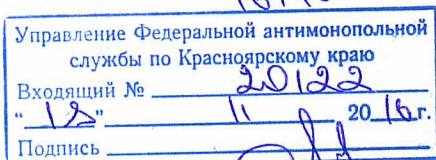 Управление Федеральной антимонопольной
службы по Красноярскому краю
Входящий № 20122
" 18 " 11 2016г.
Подпись